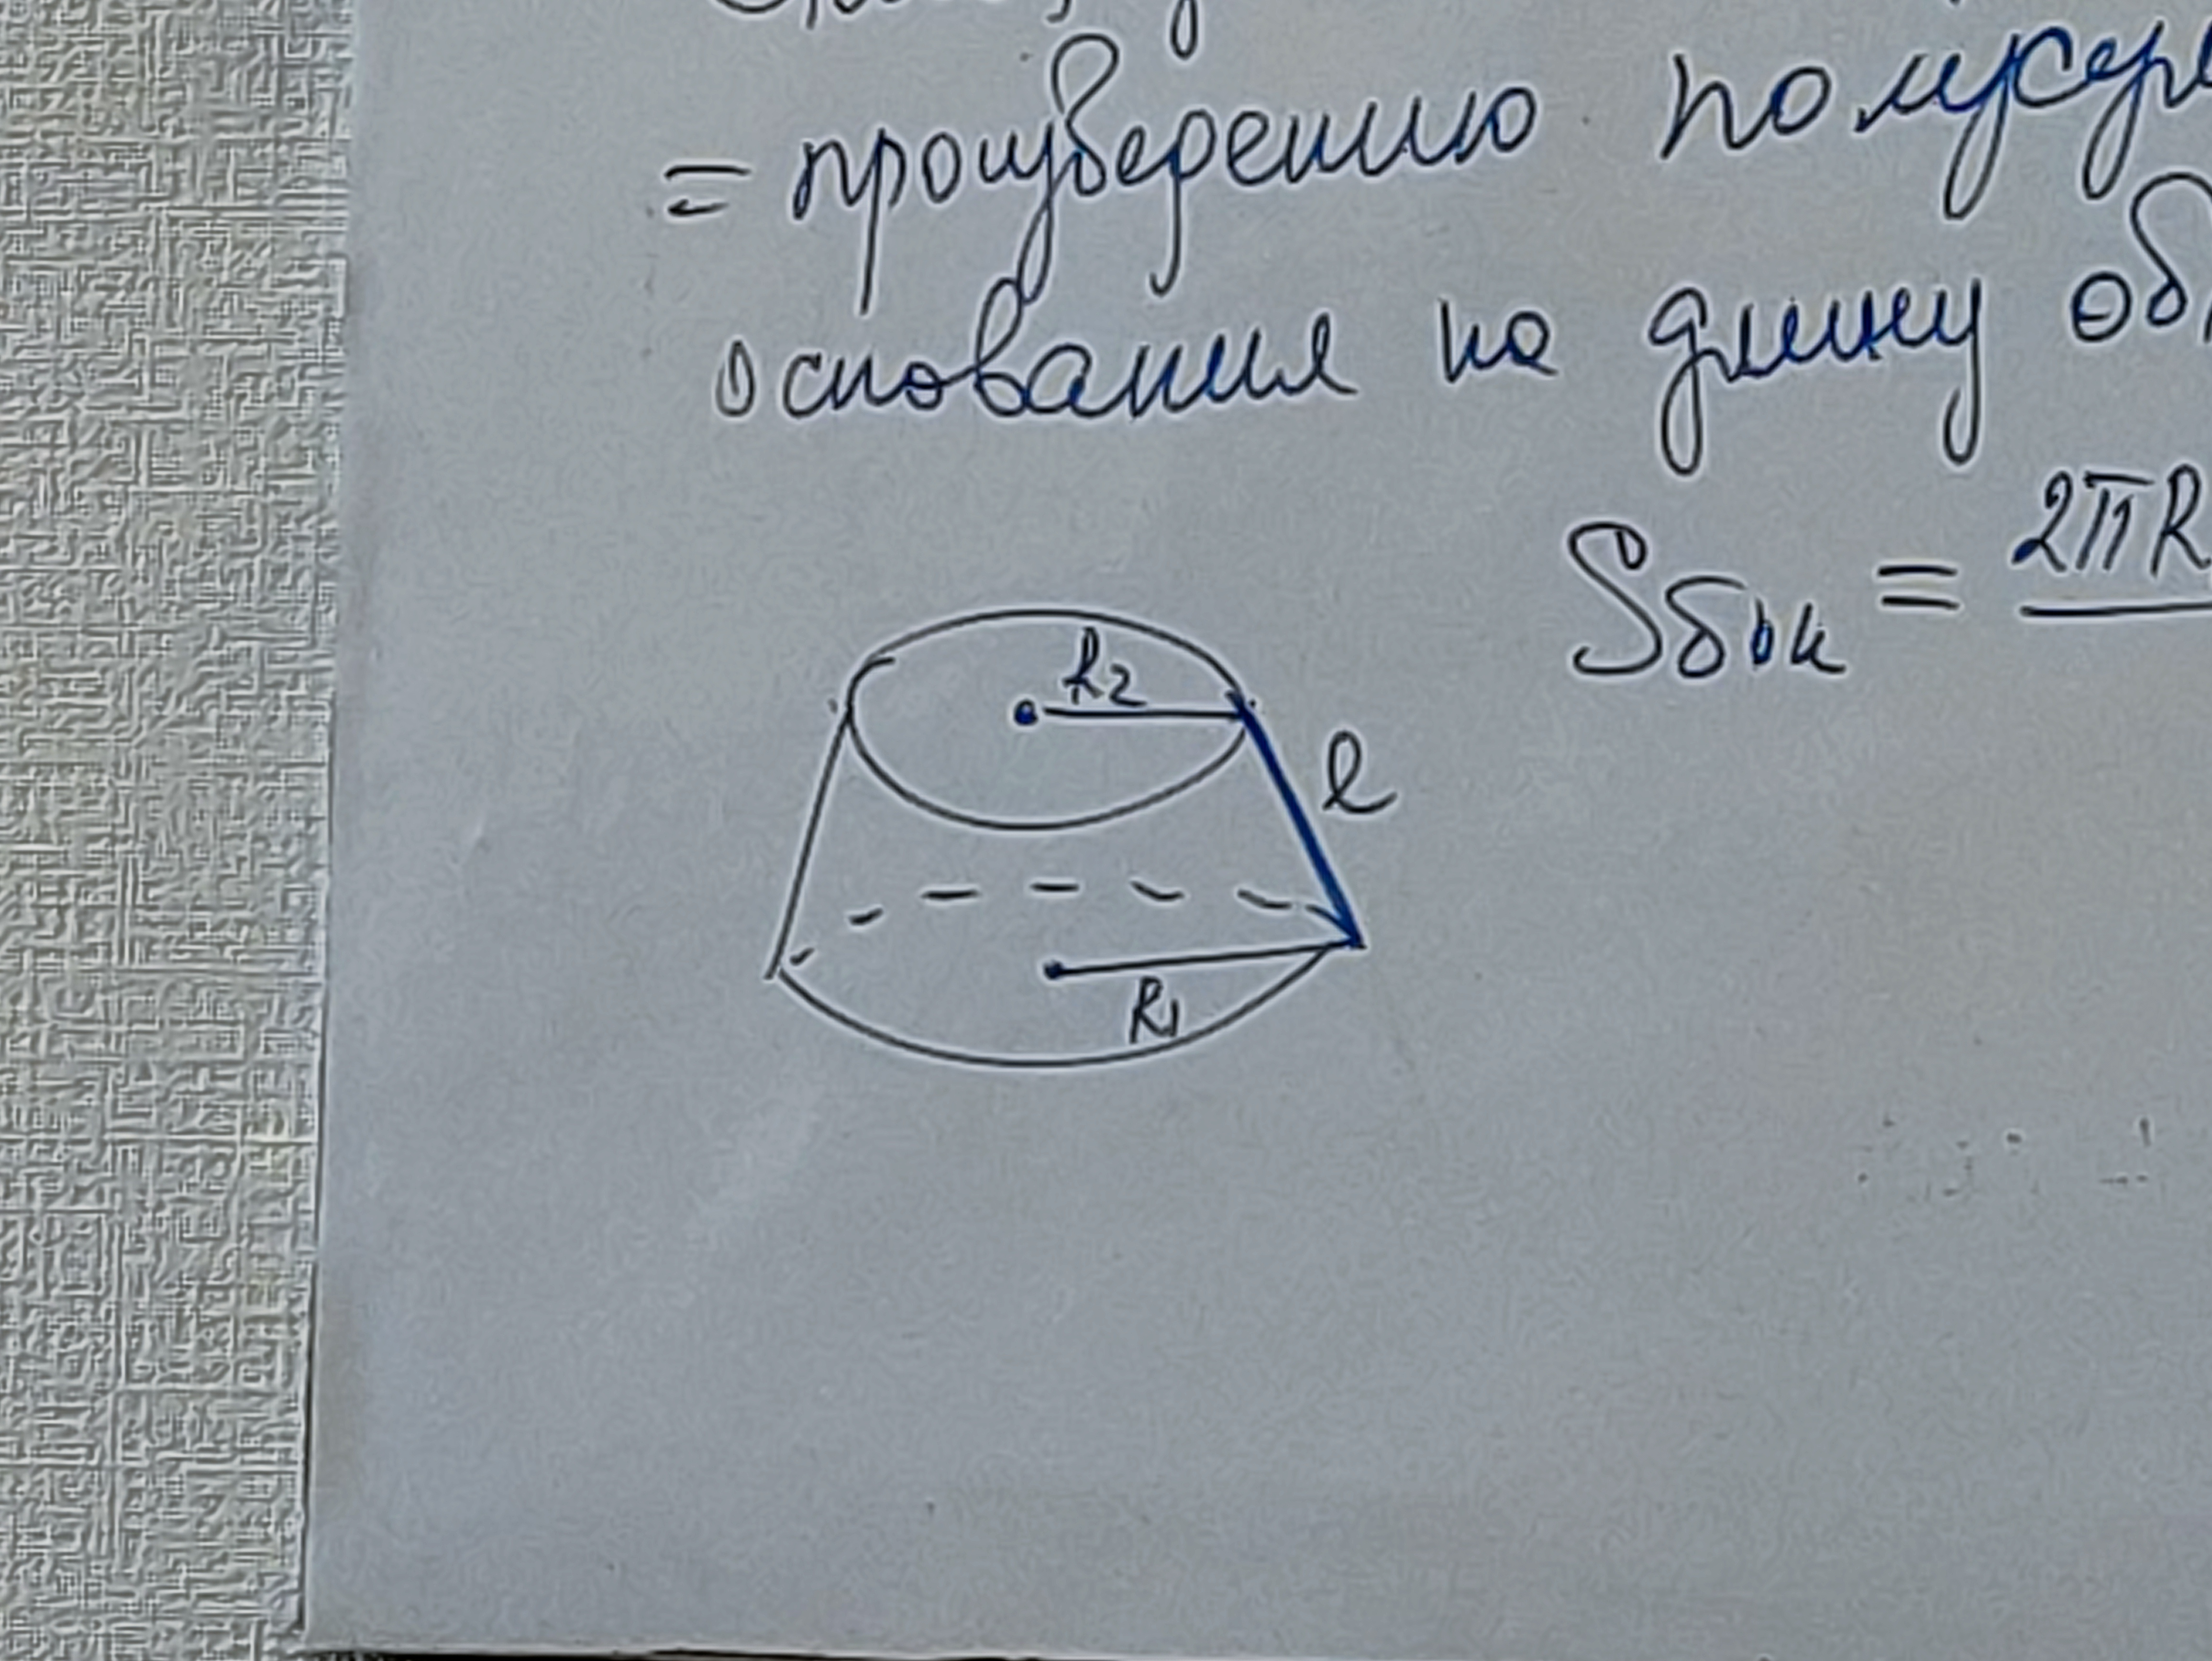 = произведению полусум
основания на длину об
Sбок = 2πR
R2
l
R1